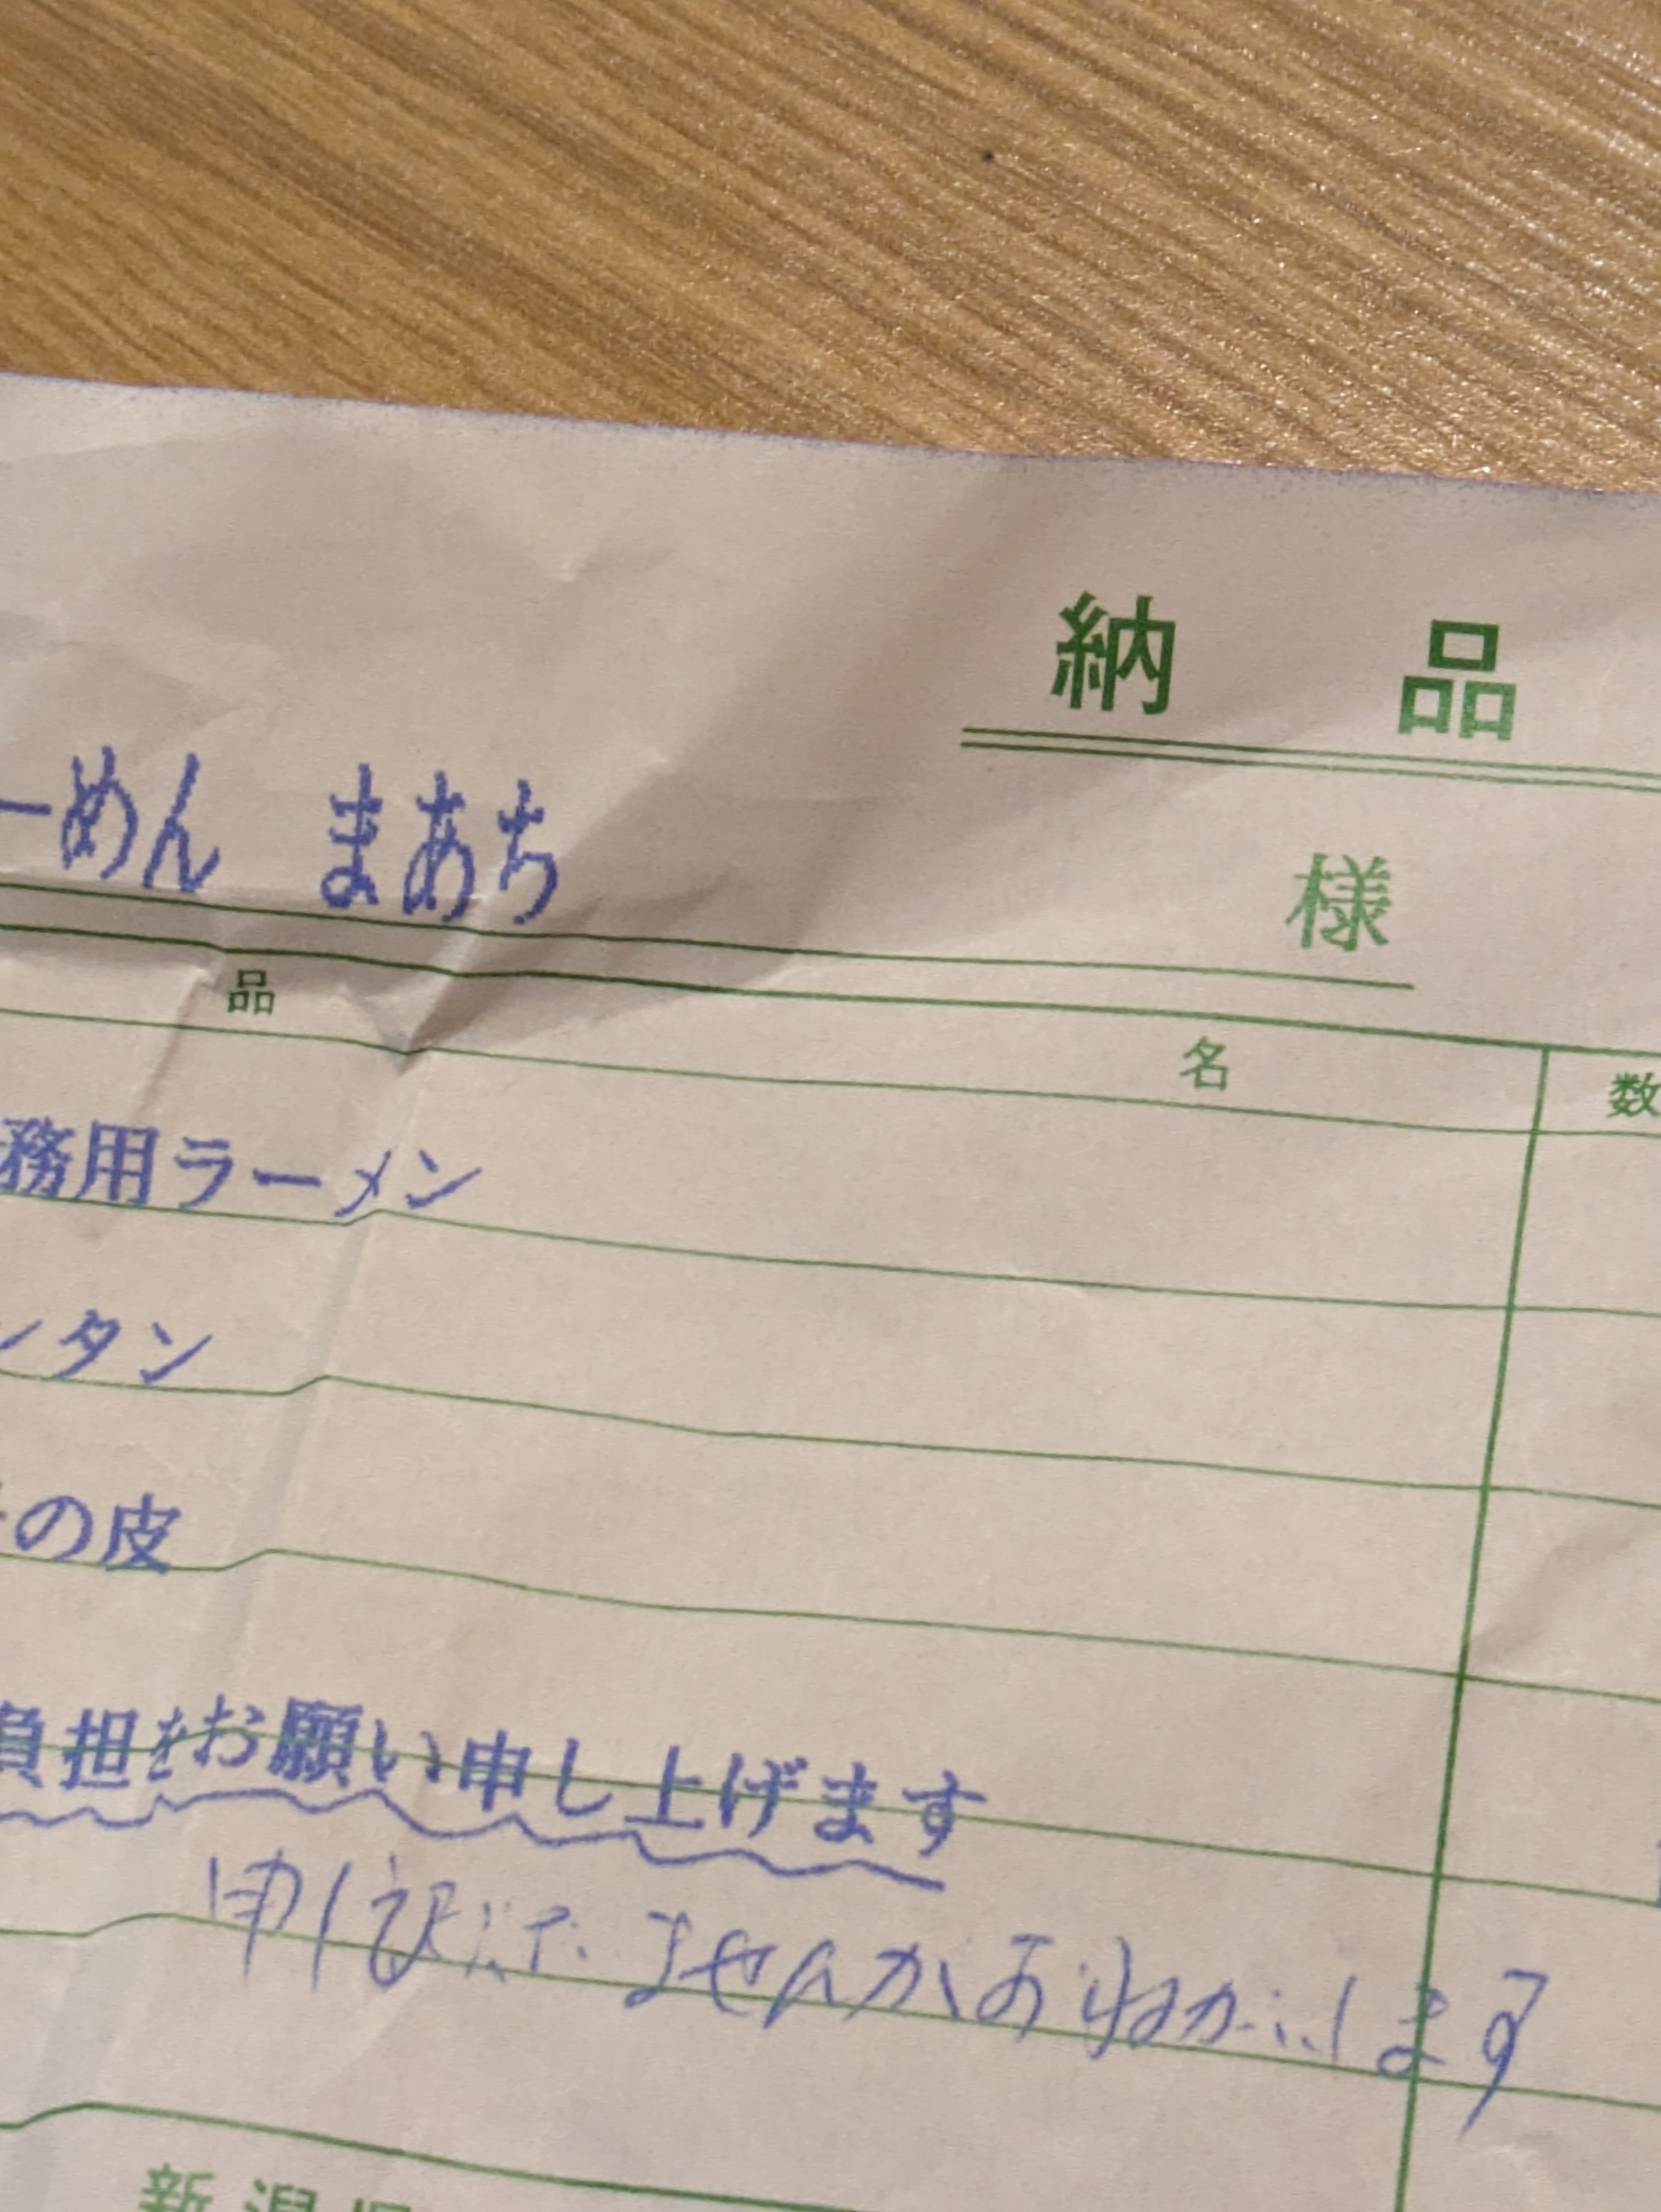 納品
ーめん まあち
様
品名 数
務用ラーメン
ンタン
の皮
負担をお願い申し上げます
申し訳 ませんがおねがいします
新潟県